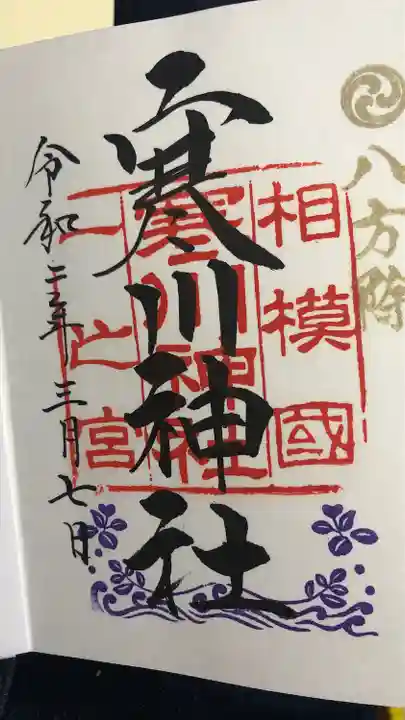 八方除
相模國
寒川神社
一之宮
寒川神社
令和二年三月七日